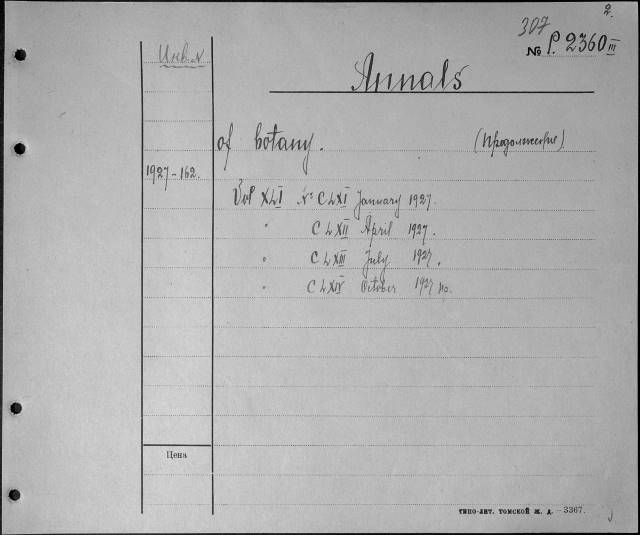 2.
307
№ P. 2360 III
Инв. №
Annals
of botany.
(Продолжение)
1927-162.
Vol XLI № CLXI January 1927.
" CLXII April 1927.
" CLXIII July 1927.
" CLXIV October 1927
Цена
ТИПО-ЛИТ. ТОМСКОЙ Ж. Д. — 3367.